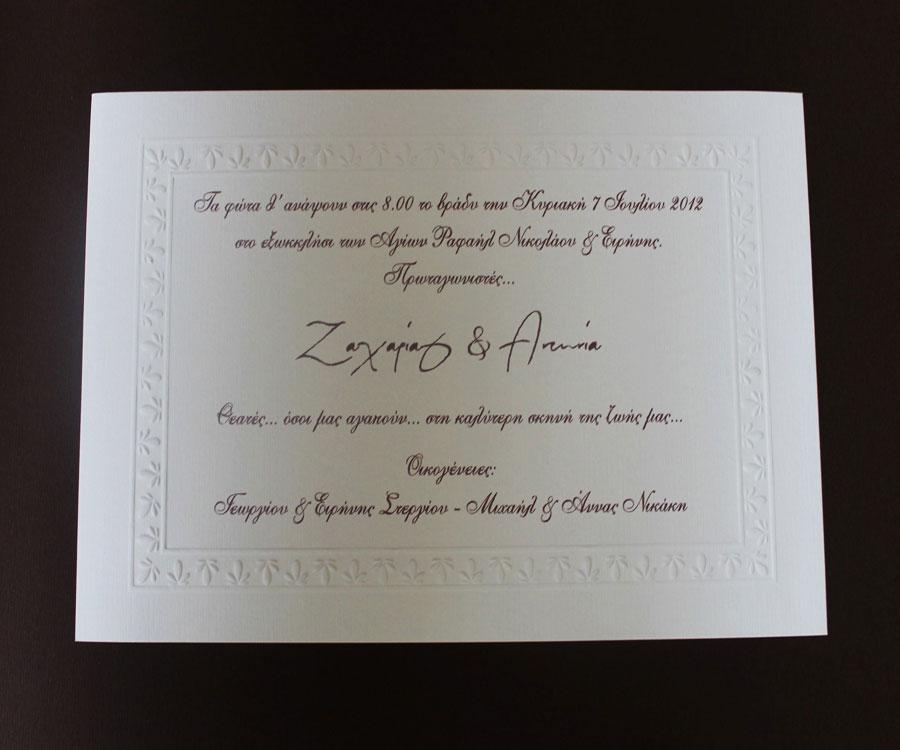 Τα φώτα θ' ανάψουν στις 8.00 το βράδυ την Κυριακή 7 Ιουλίου 2012
στο εξωκκλήσι των Αγίων Ραφαήλ Νικολάου & Ειρήνης.
Πρωταγωνιστές...
Ζαχαρίας & Αντωνία
Θεατές... όσοι μας αγαπούν... στη καλύτερη σκηνή της ζωής μας...
Οικογένειες:
Γεωργίου & Ειρήνης Στεργίου - Μιχαήλ & Άννας Νικάκη